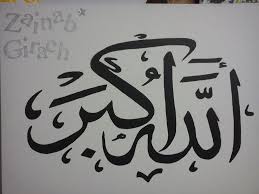 Zainab*
Girach
الله أكبر